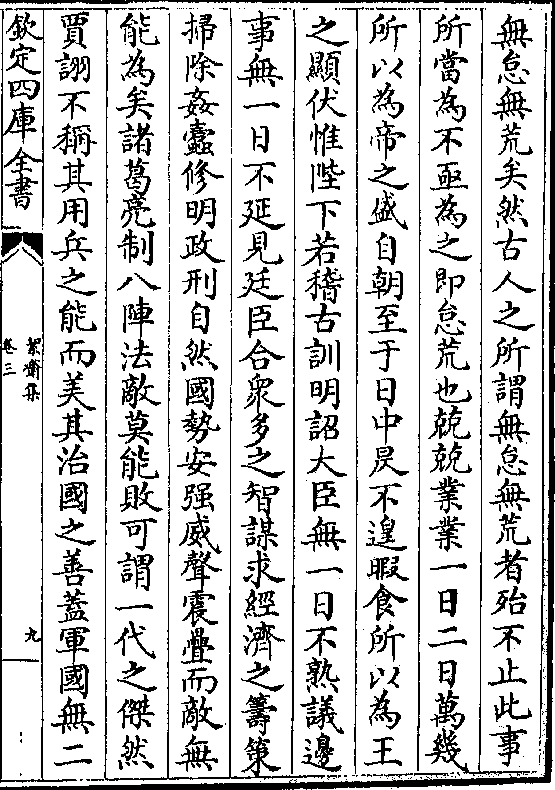 無怠無荒矣然古人之所謂無怠無荒者殆不止此事
所當為不亟為之即怠荒也兢兢業業一日二日萬幾
所以為帝之盛自朝至于日中昃不遑暇食所以為王
之顯伏惟陛下若稽古訓明詔大臣無一日不熟議邊
事無一日不延見廷臣合衆多之智謀求經濟之籌策
掃除姦蠹修明政刑自然國勢安强威聲震疊而敵無
能為矣諸葛亮制八陣法敵莫能敗可謂一代之傑然
賈詡不稱其用兵之能而美其治國之善蓋軍國無二
欽定四庫全書
絜齋集
卷三
九